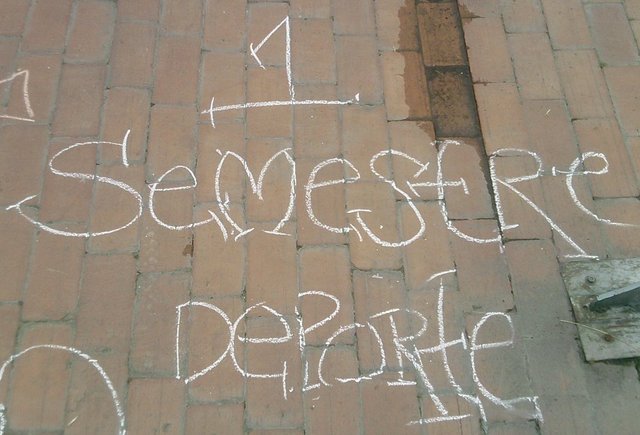 1
SemestRe
DepoRte